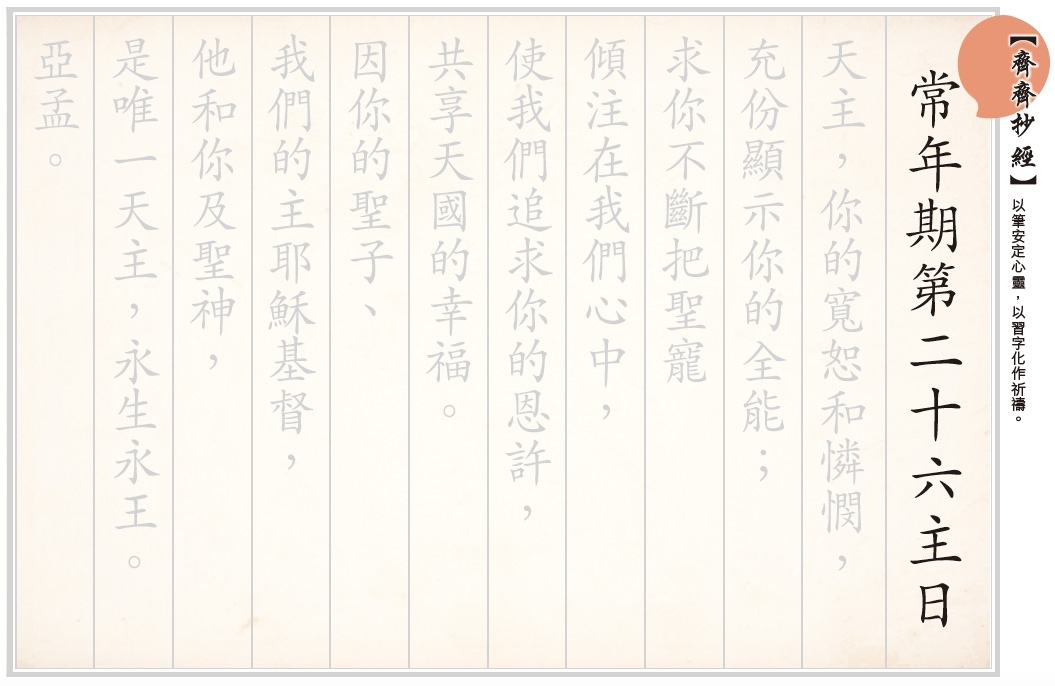 【齊齊抄經】以筆安定心靈，以習字化作祈禱。
常年期第二十六主日
天主，你的寬恕和憐憫，
充份顯示你的全能；
求你不斷把聖寵
傾注在我們心中，
使我們追求你的恩許，
共享天國的幸福。
因你的聖子、
我們的主耶穌基督，
他和你及聖神，
是唯一天主，永生永王。
亞孟。